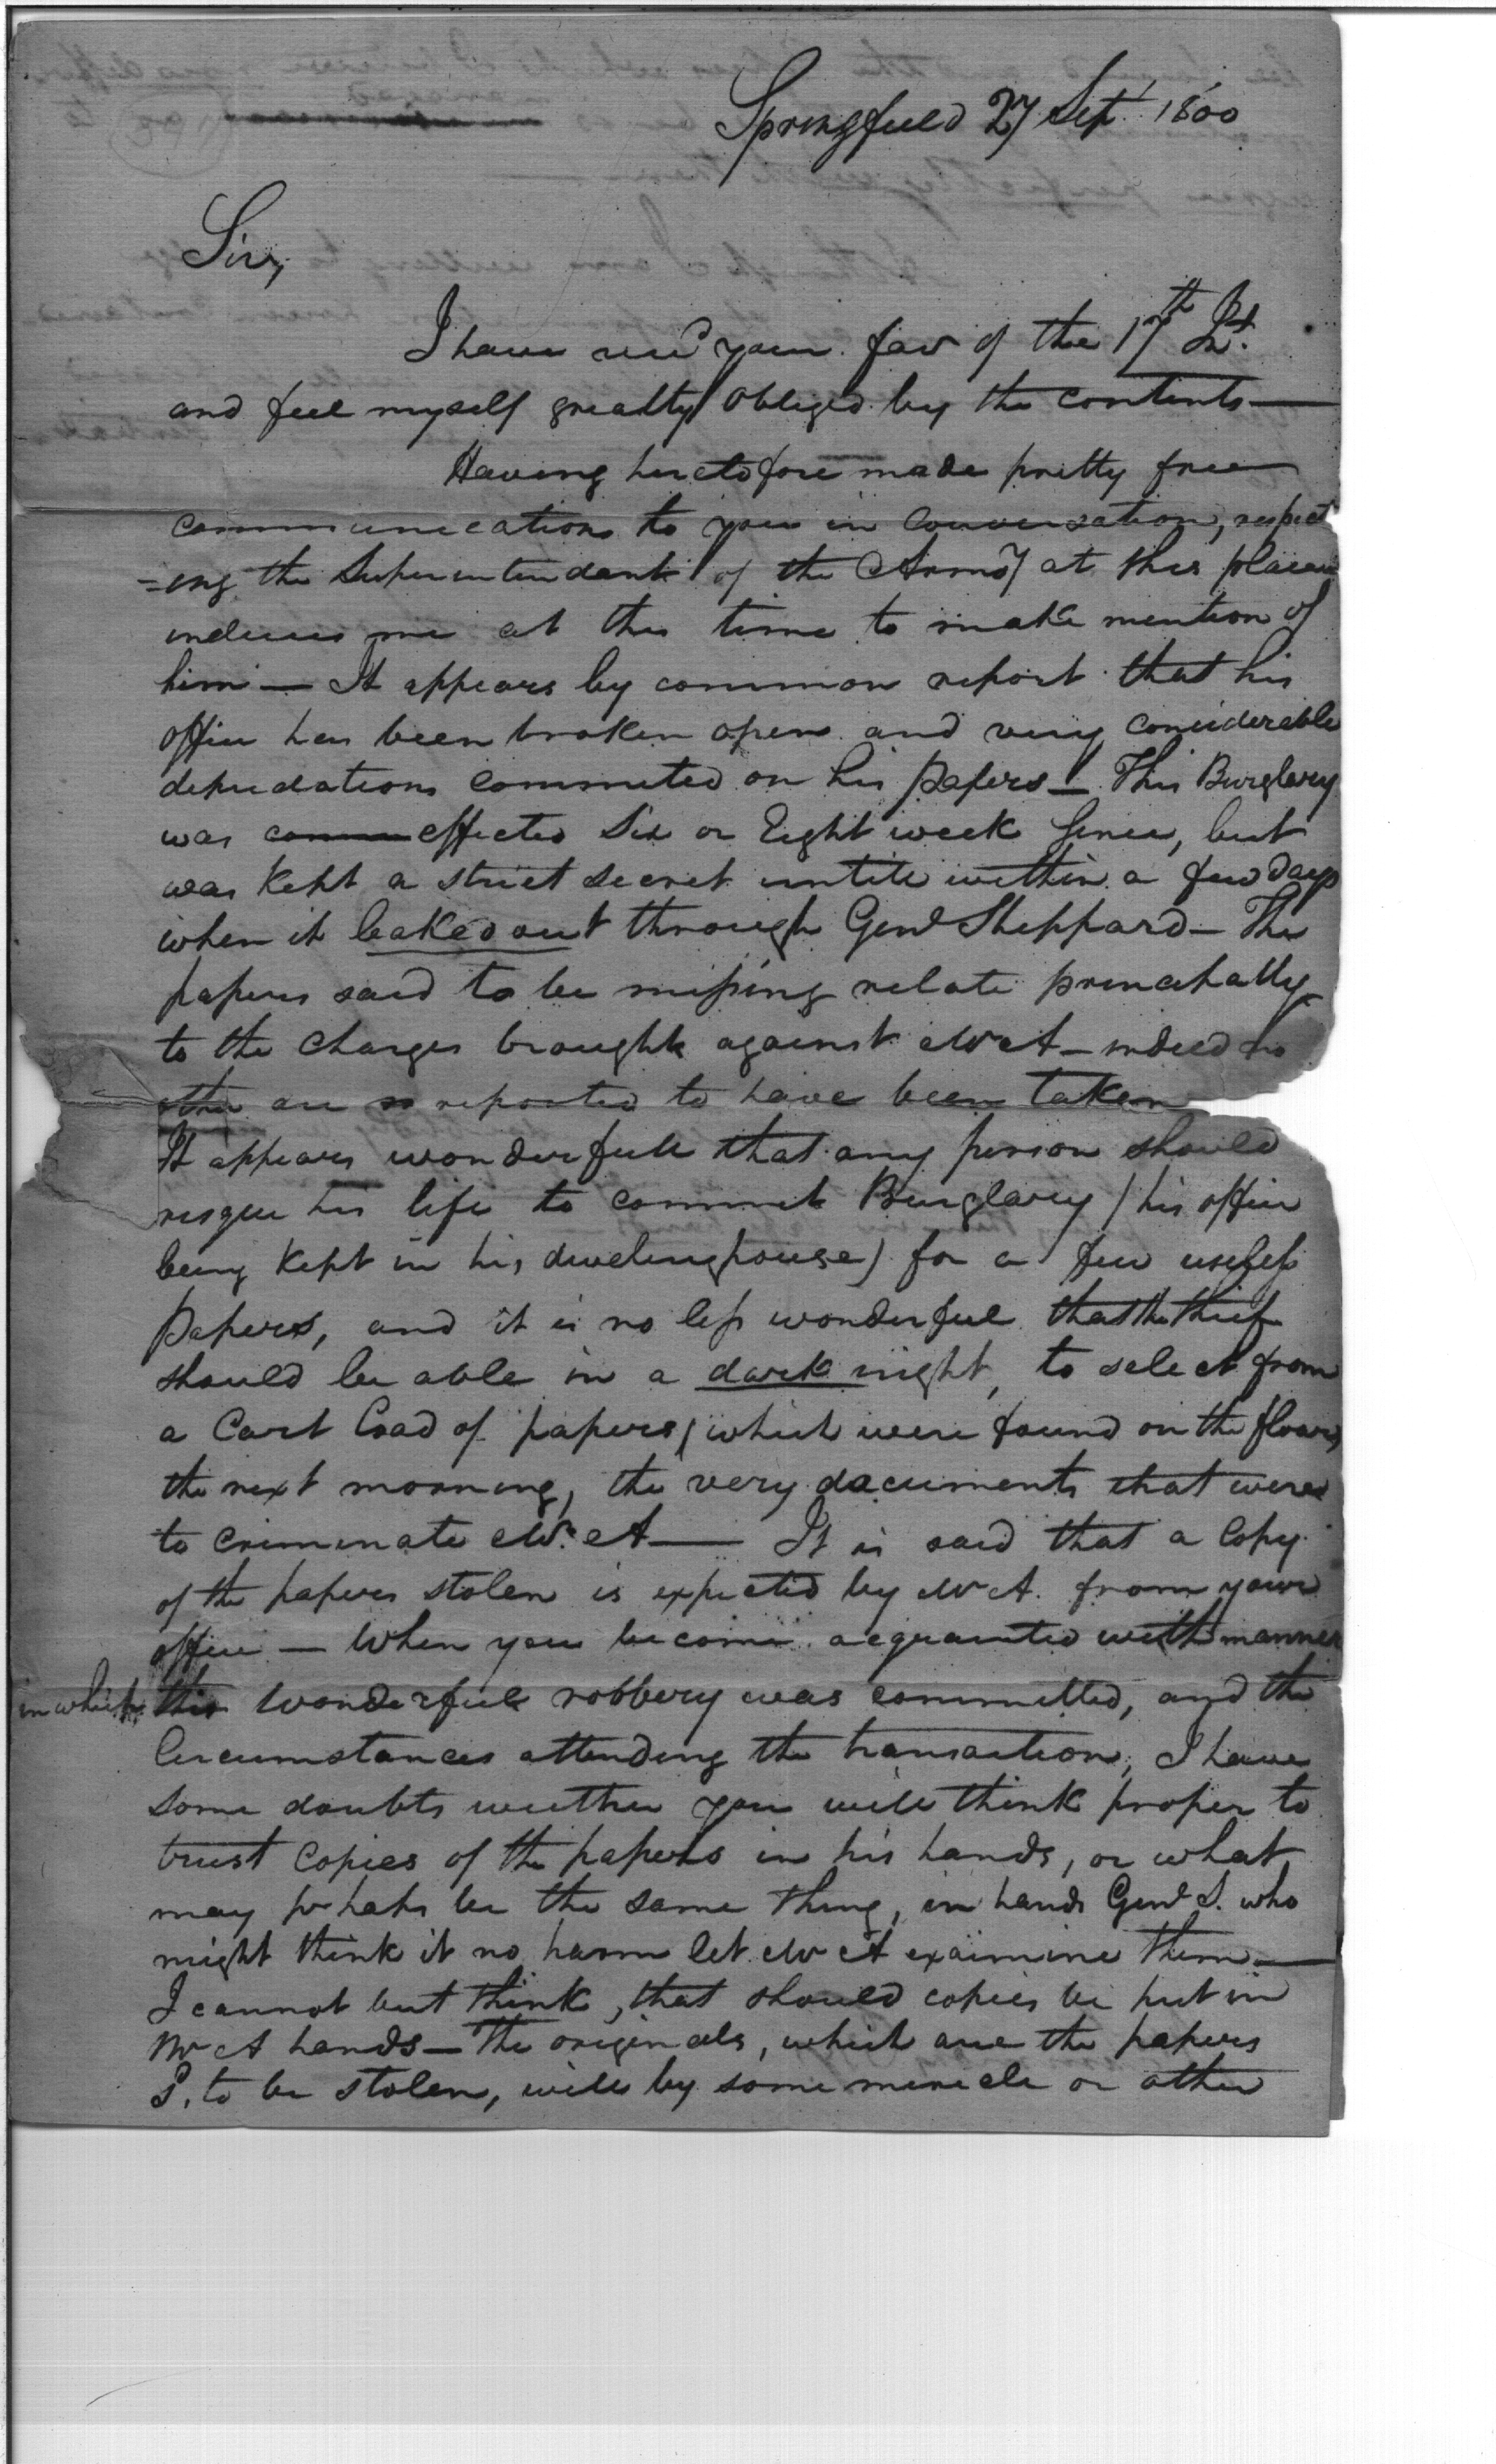 Springfield 27 Sept 1800
Sir,
I have recd your fav of the 17th Int.
and feel myself greatly obliged by the contents —
Having heretofore made pretty free
communications to you in Conversation, respect
=ing the Superintendant of the Armoy at this place
induces me at this time to make mention of
him — It appears by common report that his
office has been broken open and very considerable
depredations commited on his papers — This Burglary
was effected Six or Eight week since, but
was kept a strict secret untill within a few days
when it leaked out through Genl Sheppard — The
papers said to be missing relate principally
to the charges brought against Mr A — indeed no
other are reported to have been taken
It appears wonderfull that any person should
risque his life to commit Burglary (his office
being kept in his dwelinghouse) for a few useless
papers, and it is no less wonderful that the thief
should be able in a dark night, to select from
a Cart load of papers (which were found on the floor)
the next morning, the very documents that were
to criminate Mr. A — It is said that a Copy
of the papers stolen is expected by Mr A. from your
office — When you become acquainted with manner
in which this wonderfull robbery was committed, and the
Circumstances attending the transaction, I have
some doubts wether you will think proper to
trust Copies of the papers in his hands, or what
may prhaps be the same thing, in hands Genl S. who
might think it no harm let Mr A examine them —
I cannot but think, that should copies be put in
Mr A hands — The originals, which are the papers
S. to be stolen, will by some miricle or other